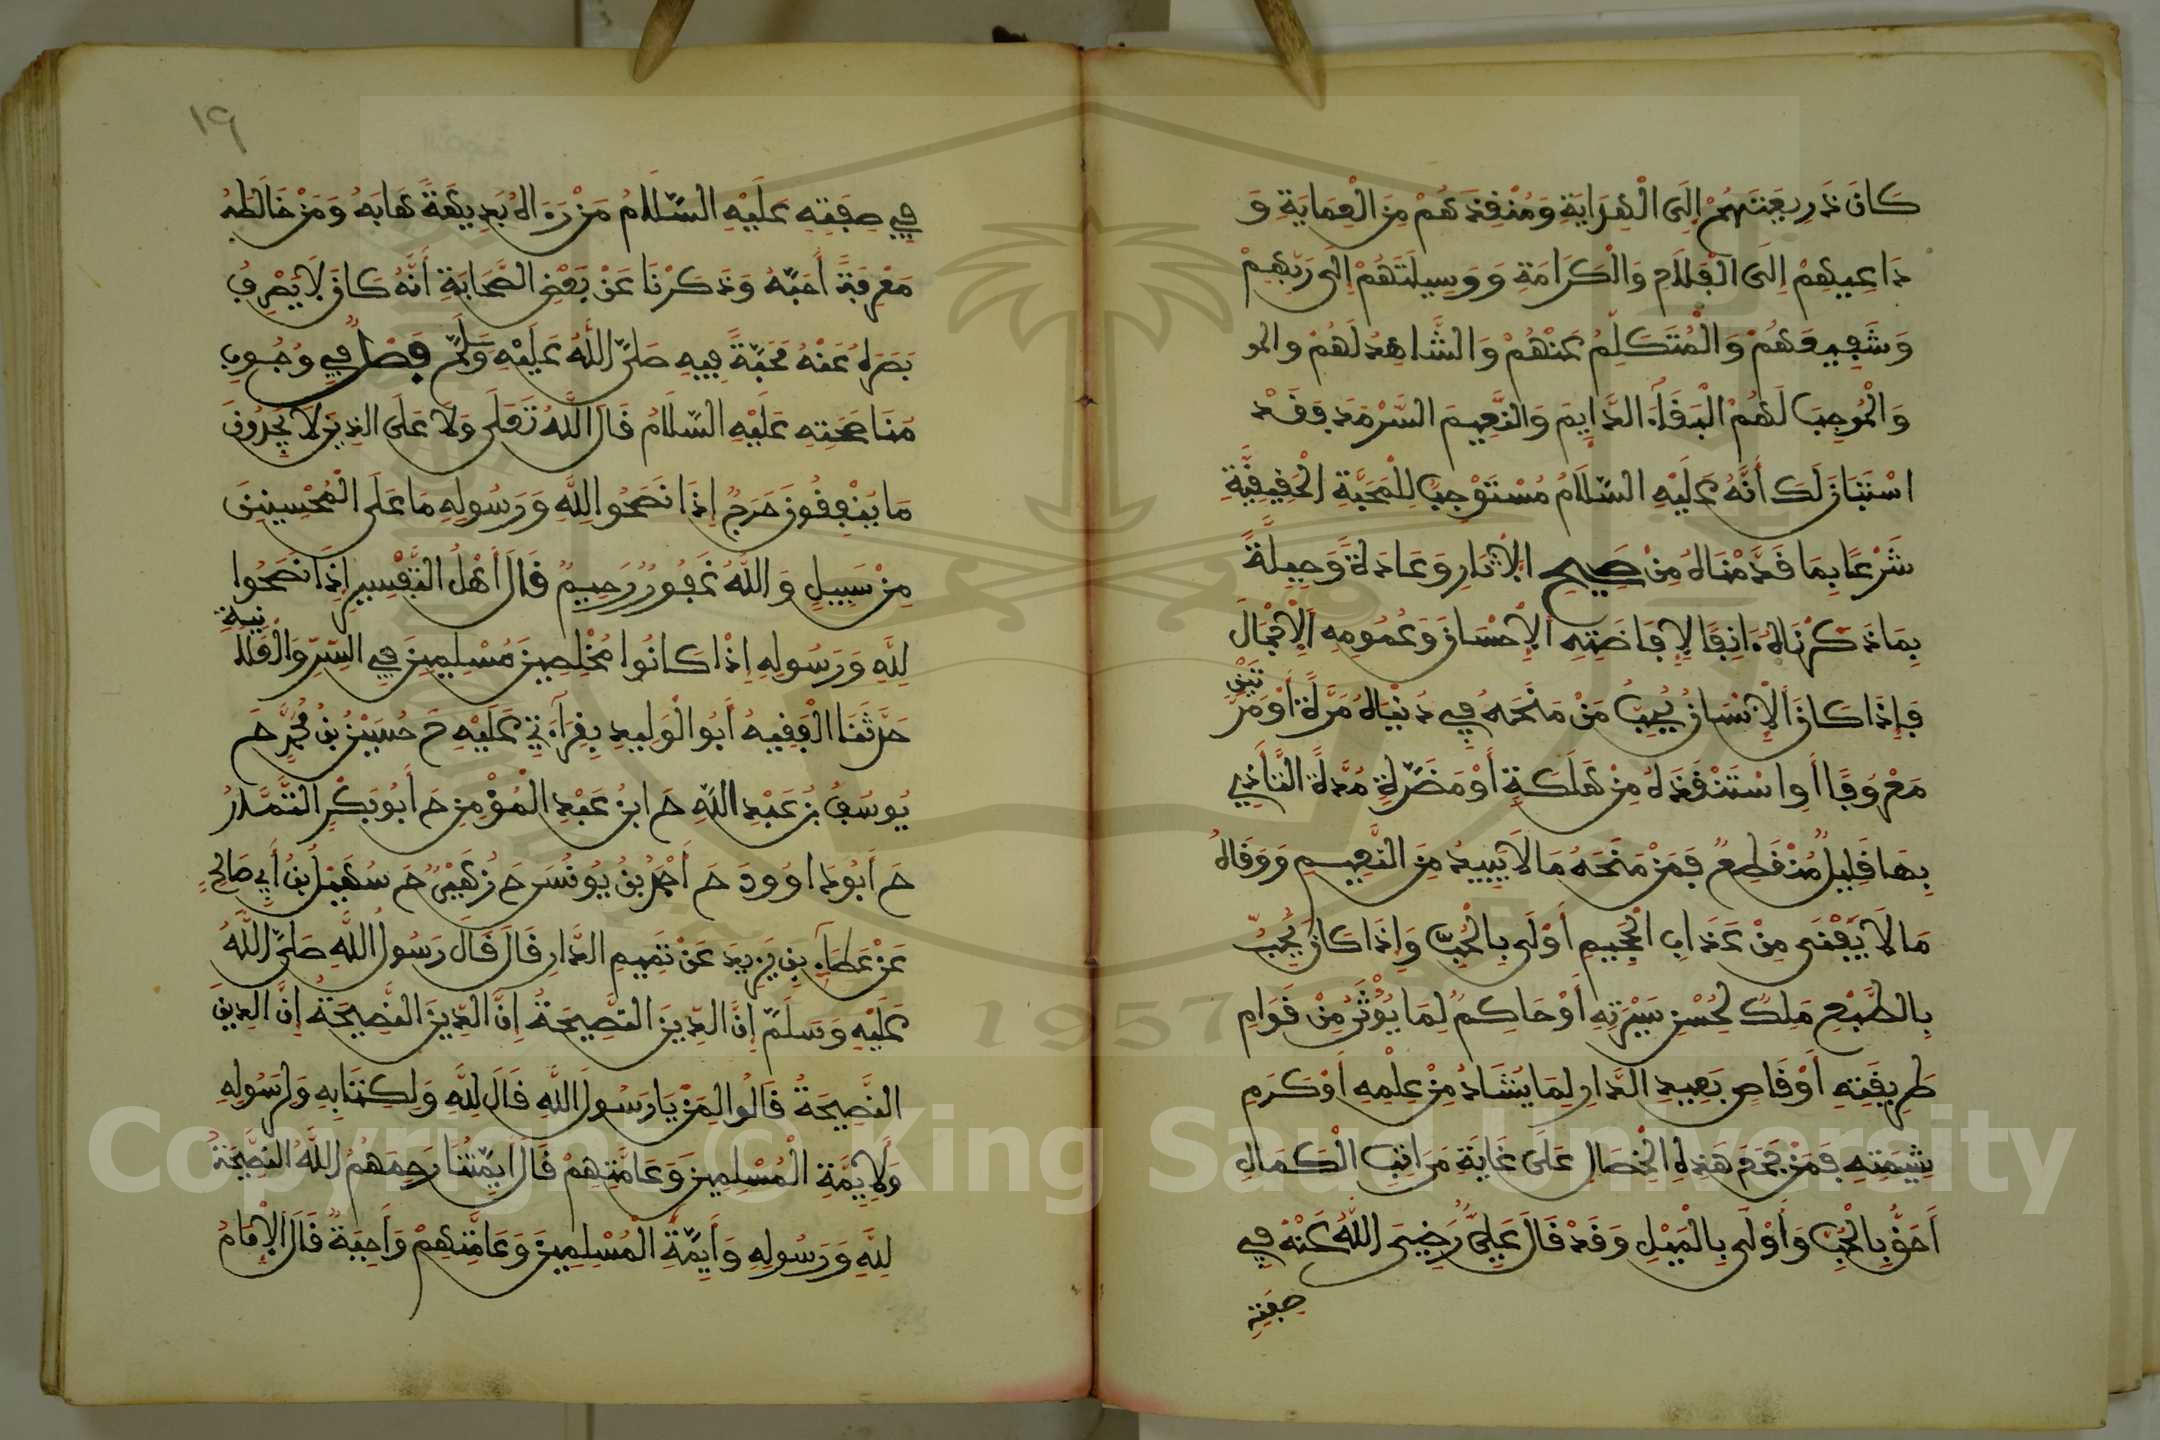 كَانَ ذَرِيعَتَهُمْ إِلَى الْهِدَايَةِ وَمُنْقِذَهُمْ مِنَ الْعِمَايَةِ وَ
دَاعِيهِمْ إِلَى الْفَلَاحِ وَالْكَرَامَةِ وَوَسِيلَتَهُمْ إِلَى رَبِّهِمْ
وَشَفِيعَهُمْ وَالْمُتَكَلِّمُ عَنْهُمْ وَالشَّاهِدُ لَهُمْ والمو
وَالْمُوجِبَ لَهُمُ الْبَقَاءَ الدَّايِمَ وَالنَّعِيمَ السَّرْمَدَ فَقَدْ
اسْتَبَانَ لَكَ أَنَّهُ عَلَيْهِ السَّلَامُ مُسْتَوْجِبٌ لِلْمَحَبَّةِ الْحَقِيقِيَّةِ
شَرْعًا بِمَا قَدَّمْنَاهُ مِنْ صَحِيحِ الْآثَارِ وَعَادَةً وَجِبِلَّةً
بِمَا ذَكَرْنَاهُ ءَانِفًا لِإِفَاضَتِهِ الْإِحْسَانَ وَعُمُومِهِ الْإِجْمَالَ
فَإِذَا كَانَ الْإِنْسَانُ يُحِبُّ مَنْ مَنَحَهُ فِي دُنْيَاهُ مَرَّةً أَوْ مَرَّ
تَيْنِ
مَعْرُوفًا أَوِ اسْتَنْقَذَهُ مِنْ هَلَكَةٍ أَوْ مَضَرَّةٍ مُدَّةُ التَّأَذِّي
بِهَا قَلِيلٌ مُنْقَطِعٌ فَمَنْ مَنَحَهُ مَا لَا يَبِيدُ مِنَ النَّعِيمِ وَوَقَاهُ
مَا لَا يَفْنَى مِنْ عَذَابِ الْجَحِيمِ أَوْلَى بِالْحُبِّ وَإِذَا كَانَ يُحِبُّ
بِالطَّبْعِ مَلِكٌ لِحُسْنِ سِيرَتِهِ أَوْ حَاكِمٌ لِمَا يُؤْثَرُ مِنْ قَوَامِ
طَرِيقَتِهِ أَوْ قَاصٍ بَعِيدِ الدَّارِ لِمَا يُشَادُ مِنْ عِلْمِهِ أَوْ كَرَمِ
شِيمَتِهِ فَمَنْ جَمَعَ هَذِهِ الْخِصَالَ عَلَى غَايَةِ مَرَاتِبِ الْكَمَالِ
أَحَقُّ بِالْحُبِّ وَأَوْلَى بِالْمَيْلِ وَقَدْ قَالَ عَلِيٌّ رَضِيَ اللَّهُ عَنْهُ فِي
صفته
١٩
فِي صِفَتِهِ عَلَيْهِ السَّلَامُ مَنْ رَءَاهُ بَدِيهَةً هَابَهُ وَمَنْ خَالَطَهُ
مَعْرِفَةً أَحَبَّهُ وَذَكَرْنَا عَنْ بَعْضِ الصَّحَابَةِ أَنَّهُ كَانَ لَا يَصْرِفُ
بَصَرَهُ عَنْهُ مَحَبَّةً فِيهِ صَلَّى اللَّهُ عَلَيْهِ وَسَلَّمَ فَصْلٌ فِي وُجُوبِ
مُنَاصَحَتِهِ عَلَيْهِ السَّلَامُ قَالَ اللَّهُ تَعَلَى وَلَا عَلَى الذِينَ لَا يَجِدُونَ
مَا يُنْفِقُونَ حَرَجٌ إِذَا نَصَحُوا لِلَّهِ وَرَسُولِهِ مَا عَلَى الْمُحْسِنِينَ
مِنْ سَبِيلٍ وَاللَّهُ غَفُورٌ رَحِيمٌ قَالَ أَهْلُ التَّفْسِيرِ إِذَا نَصَحُوا
لِلَّهِ وَرَسُولِهِ إِذَا كَانُوا مُخْلِصِينَ مُسْلِمِينَ فِي السِّرِّ وَالْعَلَا
نِيَةِ
حَدَّثَنَا الْفَقِيهُ أَبُو الْوَلِيدِ بِقِرَاءَتِي عَلَيْهِ حَ حُسَيْنُ بْنُ مُحَمَّدٍ حَ
يُوسُفُ بْنُ عَبْدِ اللَّهِ حَ ابْنُ عَبْدِ الْمُؤْمِنِ حَ أَبُو بَكْرٍ التَّمَّارُ
حَ أَبُو دَاوُودَ حَ أَحْمَدُ بْنُ يُونُسَ حَ زُهَيْرٌ حَ سُهَيْلُ بْنُ أَبِي صَالِحٍ
عَنْ عَطَاءِ بْنِ يَزِيدَ عَنْ تَمِيمِ الدَّارِ قَالَ قَالَ رَسُولُ اللَّهِ صَلَّى اللَّهُ
عَلَيْهِ وَسَلَّمَ إِنَّ الدِّينَ النَّصِيحَةُ إِنَّ الدِّينَ النَّصِيحَةُ إِنَّ الدِّينَ
النَّصِيحَةُ قَالُوا لِمَنْ يَا رَسُولَ اللَّهِ قَالَ لِلَّهِ وَلِكِتَابِهِ وَلِرَسُولِهِ
وَلِأَيِمَّةِ الْمُسْلِمِينَ وَعَامَّتِهِمْ قَالَ أَيِمَّتُنَا رَحِمَهُمُ اللَّهُ النَّصِيحَةُ
لِلَّهِ وَرَسُولِهِ وَأَيِمَّةِ الْمُسْلِمِينَ وَعَامَّتِهِمْ وَاجِبَةٌ قَالَ الْإِمَامُ
1957
Copyright © King Saud University